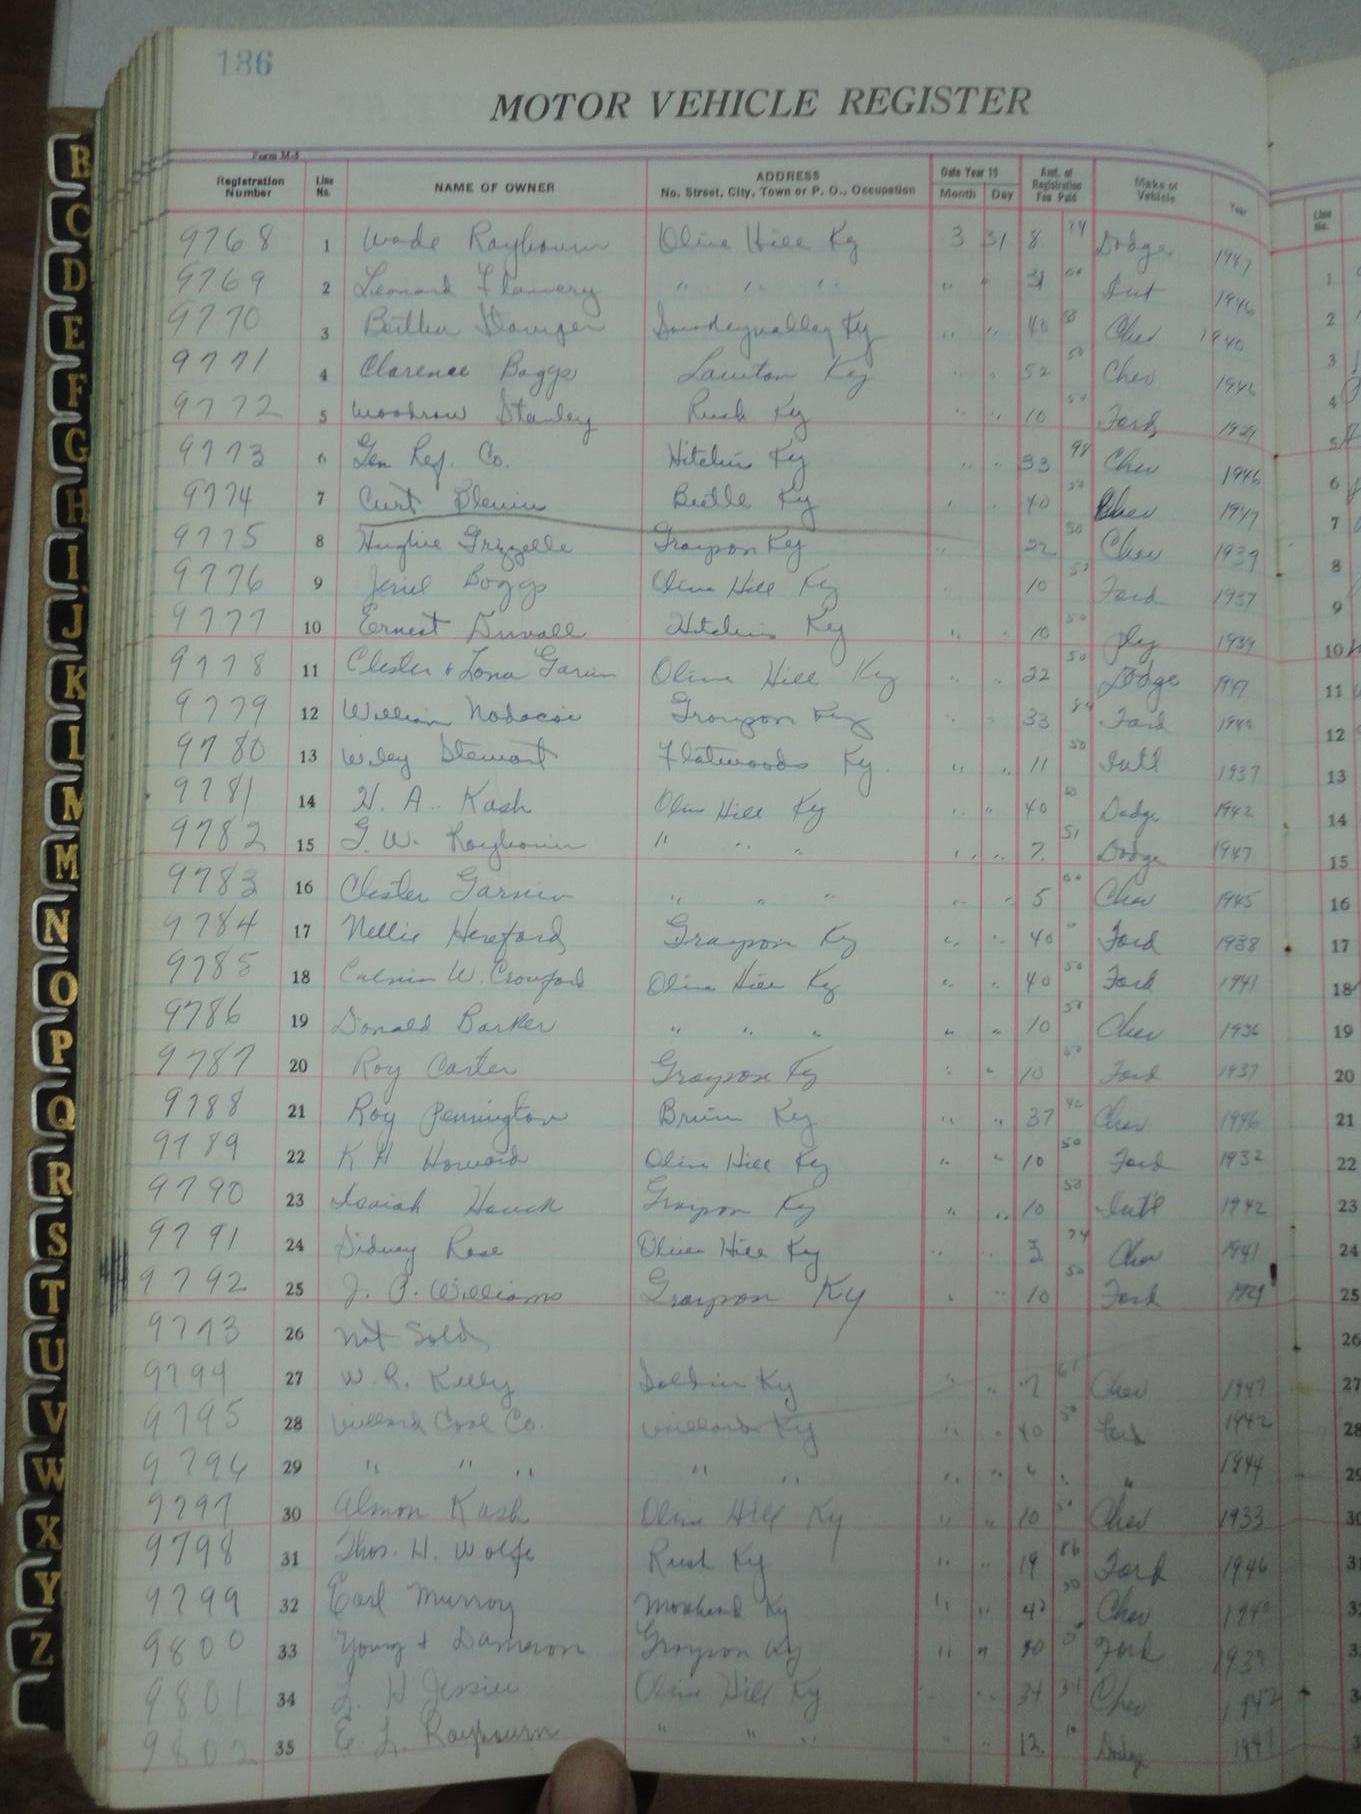 186
MOTOR VEHICLE REGISTER
Form M-5
Registration Number Line No. NAME OF OWNER ADDRESS No. Street, City, Town or P. O., Occupation Date Year 19 Month Day Amt. of Registration Fee Paid Make of Vehicle Year Line No.
9768 1 Wade Raybourn Olive Hill Ky 3 31 8 74 Dodge 1947
9769 2 Leonard Flannery " " " " " 31 00 Int 1946 1
9770 3 Ky " " 40 Chev 1940 2
9771 4 Clarence Boggs Lawton Ky " " 52 50 Chev 1946 3
9772 5 Woodrow Stanley Rush Ky " " 10 50 Ford 1929 4
9773 6 Gen Ref. Co. Hitchins Ky " " 33 98 Chev 1946 5
9774 7 Curt Blevin Beetle Ky " " 40 50 Chev 1947 6
9775 8 Hughie Grizzelle Grayson Ky " 22 50 Chev 1939 7
9776 9 Jeriel Boggs Olive Hill Ky 10 50 Ford 1937 8
9777 10 Ernest Duvall Hitchins Ky " " 10 50 Ply 1939 9
9778 11 Chester & Lona Garvin Olive Hill Ky " " 22 50 Dodge 1947 10
9779 12 William Grayson Ky " " 33 84 Ford 1940 11
9780 13 Wiley Stewart Flatwoods Ky. " " 11 50 Int'l 1937 12
9781 14 H. A. Kash Olive Hill Ky " " 40 50 Dodge 1942 13
9782 15 G. W. Raybourn " " " " " 7. 51 Dodge 1947 14
9783 16 Chester Garvin " " " " " 5 00 Chev 1945 15
9784 17 Nellie Hereford Grayson Ky " " 40 Ford 1938 16
9785 18 Calvin W. Crawford Olive Hill Ky " " 40 50 Ford 1941 17
9786 19 Donald Barker " " " " " 10 50 Chev 1936 18
9787 20 Roy Carter Grayson Ky " " 10 50 Ford 1937 19
9788 21 Roy Pennington Bruin Ky " " 37 42 Chev 1946 20
9789 22 K H Howard Olive Hill Ky " " 10 50 Ford 1932 21
9790 23 Isaiah Grayson Ky " " 10 50 Int'l 1942 22
9791 24 Sidney Rose Olive Hill Ky " " 74 Chev 1941 23
9792 25 J. P. Williams Grayson Ky " " 10 50 Ford 1929 24
9793 26 Not Sold 25
9794 27 W. R. Kelly Soldier Ky " " 7 61 Chev 1947 26
9795 28 Willard Coal Co. Willard Ky " " 40 50 Ford 1942 27
9796 29 " " " " " " " " " " 1944 28
9797 30 Almon Kash Olive Hill Ky " " 10 50 Chev 1933 29
9798 31 Thos. H. Wolfe Rush Ky " " 19 86 Ford 1946 30
9799 32 Earl Murray Morehead Ky " " Chev 1940 31
9800 33 Young & Dameron Grayson Ky " " 50 Ford 32
9801 34 L. H Jessie Olive Hill Ky " " 34 34 Chev 1942 33
9802 35 E. L. Raybourn " " " " " 12. 10 Dodge 1947 34
B
C
D
E
F
G
H
I
J
K
L
M
M
N
O
P
Q
R
S
T
U
V
W
X
Y
Z